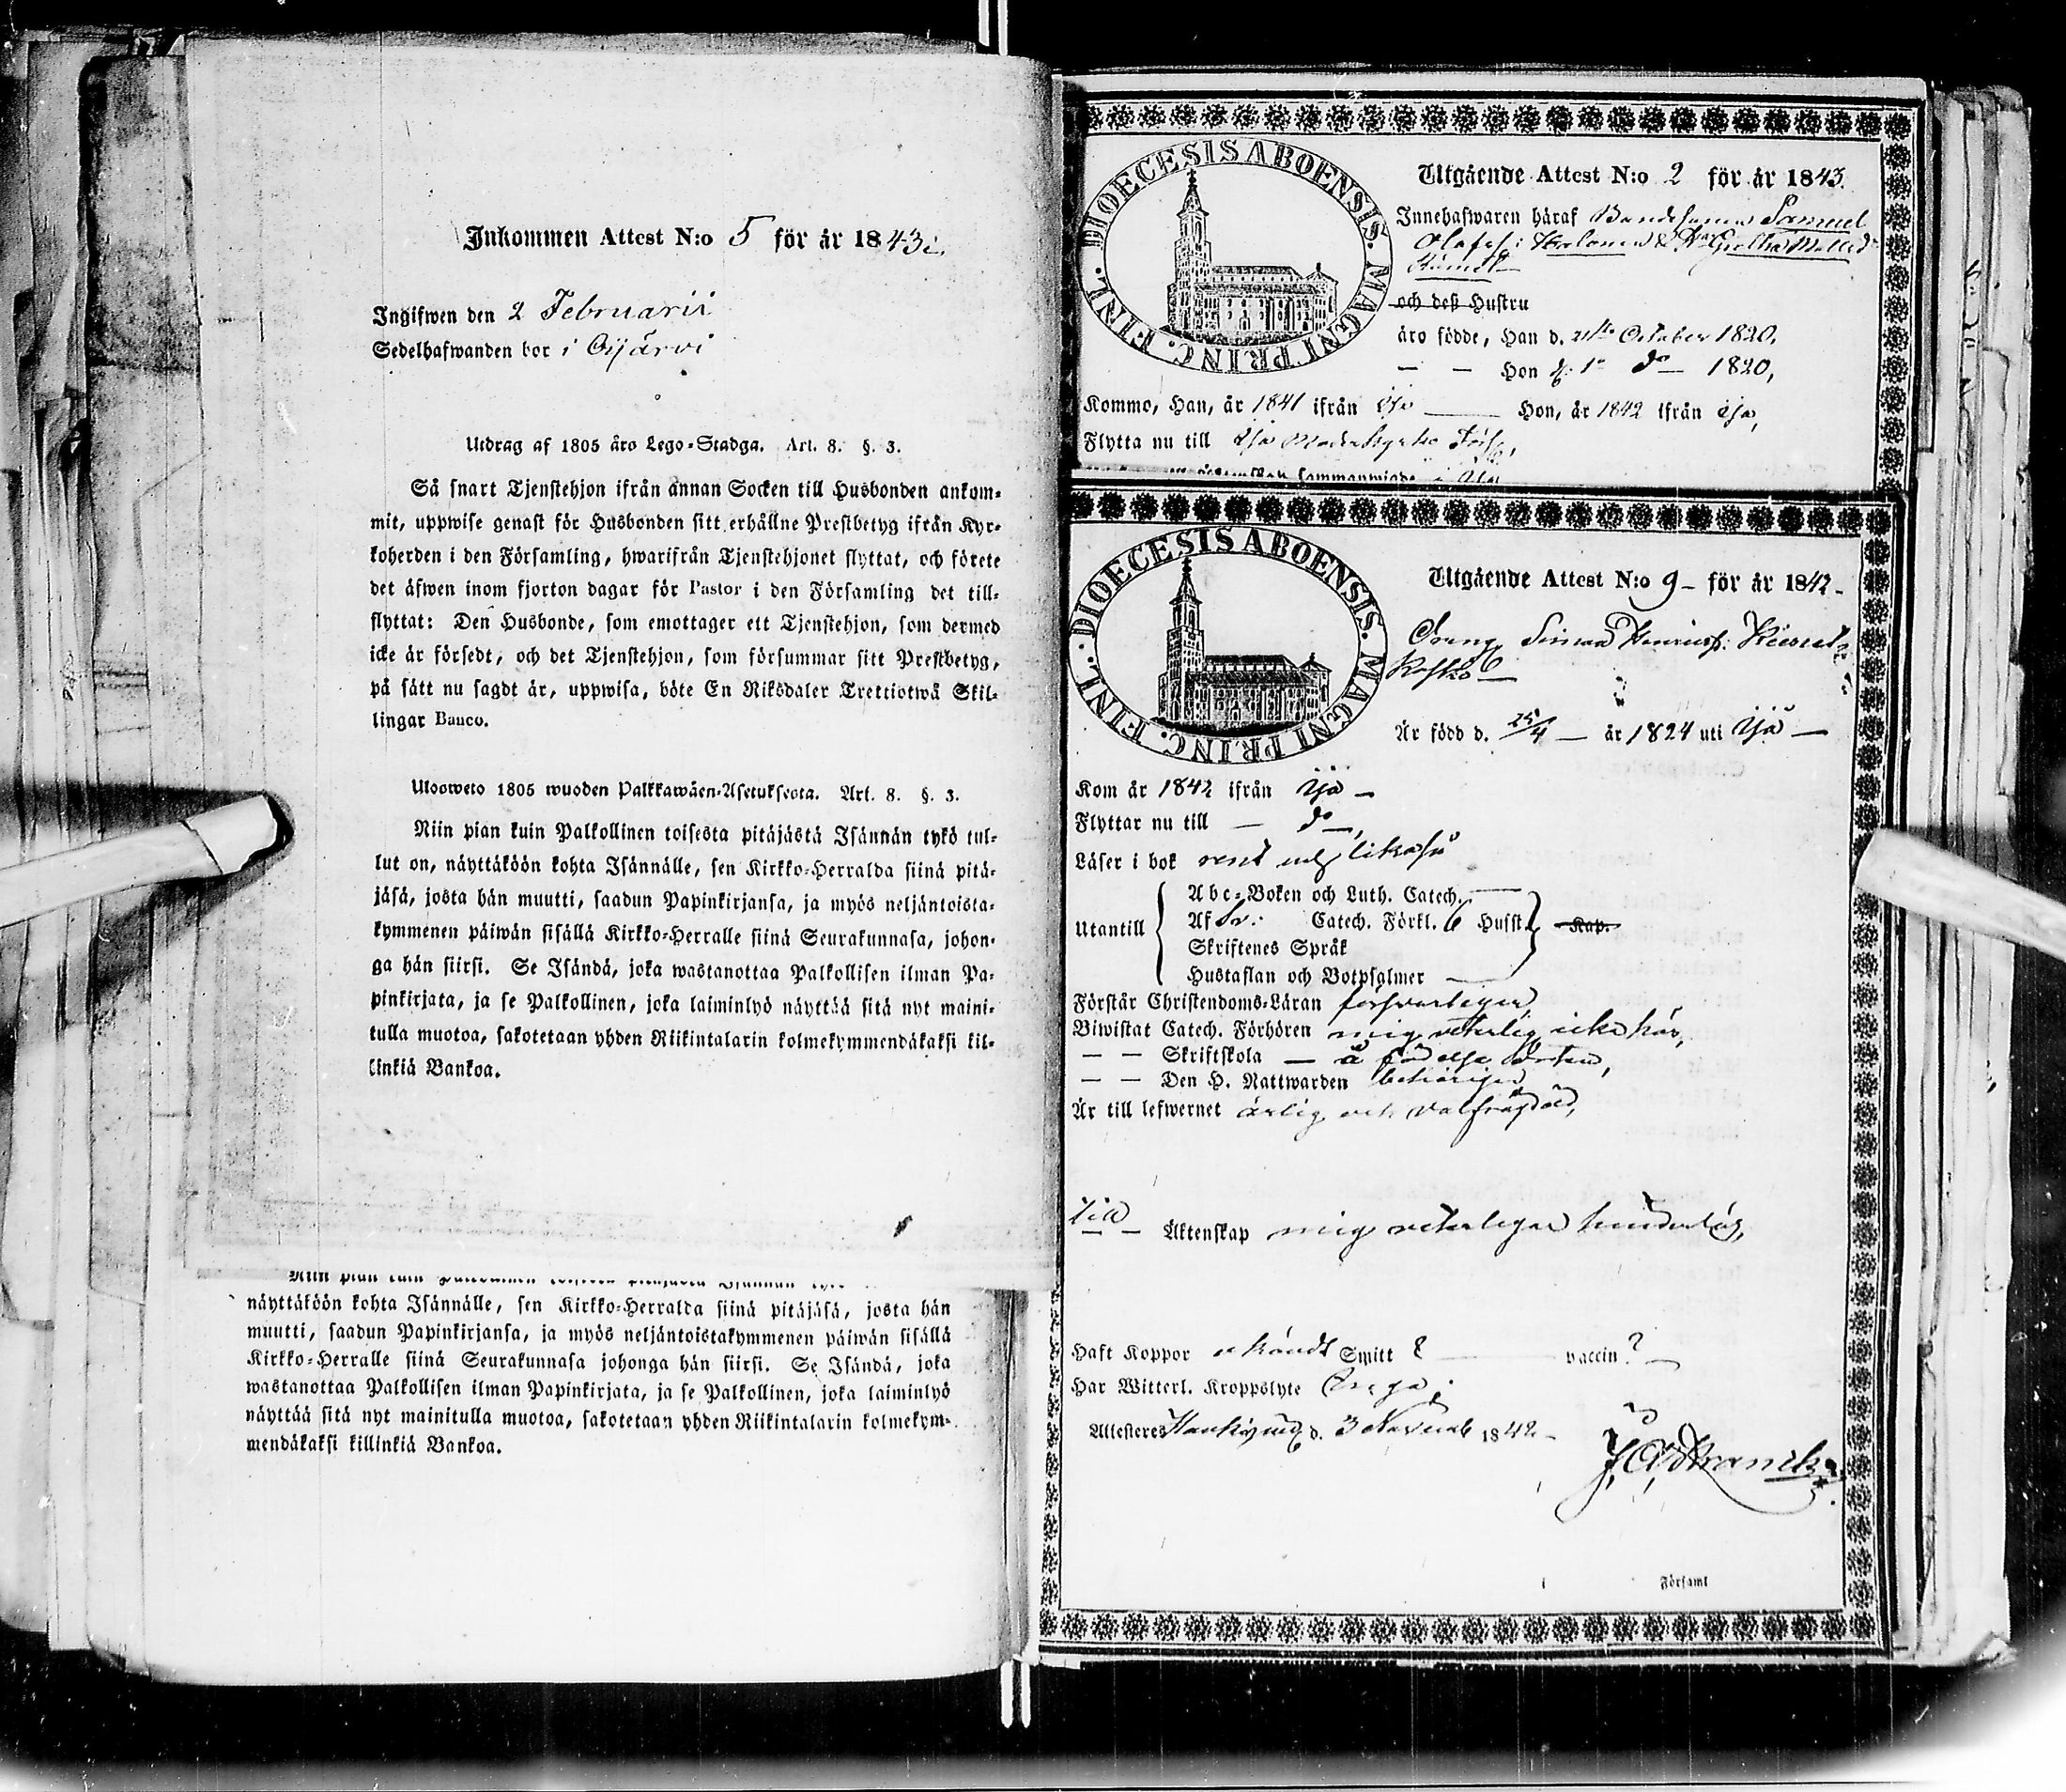 Inkommen Attest N:o 5 för år 1843.
Ingifwen den 2 Februarii
Sedelhafwanden bor i Oijärvi
Utdrag af 1805 års Lego-Stadga. Art. 8. §. 3.
Så snart Tjenstehjon ifrån annan Socken till Husbonden ankom-
mit, uppwise genast för Husbonden sitt erhållne Prestbetyg ifrån Kyr-
koherden i den Församling, hwarifrån Tjenstehjonet flyttat, och förete
det äfwen inom fjorton dagar för Pastor i den Församling det till-
flyttat: Den Husbonde, som emottager ett Tjenstehjon, som dermed
icke är försedt, och det Tjenstehjon, som försummar sitt Prestbetyg,
på sätt nu sagdt är, uppwisa, böte En Riksdaler Trettiotwå Skil-
lingar Banco.
Ulosweto 1805 wuoden Palkkawäen-Asetuksesta. Art. 8. §. 3.
Niin pian kuin Palkollinen toisesta pitäjästä Isännän tykö tul-
lut on, näyttäköön kohta Isännälle, sen Kirkko-Herralda siinä pitä-
jäsä, josta hän muutti, saadun Papinkirjansa, ja myös neljäntoista-
kymmenen päiwän sisällä Kirkko-Herralle siinä Seurakunnasa, johon-
ga hän siirsi. Se Isändä, joka wastanottaa Palkollisen ilman Pa-
pinkirjata, ja se Palkollinen, joka laiminlyö näyttää sitä nyt maini-
tulla muotoa, sakotetaan yhden Riikintalarin kolmekymmendäkaksi kil-
linkiä Bankoa.
näyttäköön kohta Isännälle, sen Kirkko-Herralda siinä pitäjäsä, josta hän
muutti, saadun Papinkirjansa, ja myös neljäntoistakymmenen päiwän sisällä
Kirkko-Herralle siinä Seurakunnasa johonga hän siirsi. Se Isändä, joka
wastanottaa Palkollisen ilman Papinkirjata, ja se Palkollinen, joka laiminlyö
näyttää sitä nyt mainitulla muotoa, sakotetaan yhden Riikintalarin kolmekym-
mendäkaksi killinkiä Bankoa.
DIOECESIS ABOENSIS. MAGNI PRINC. FINL.
Utgående Attest N:o 2 för år 1843.
Innehafwaren häraf Samuel
Olofss:
och deß Hustru
äro födde, Han d. October 1820,
— — Hon d. 1 do 1820,
Kommo, Han, år 1841 ifrån Ijo Hon, år 1842 ifrån Ijo,
Flytta nu till Ijo Moderkyrko
DIOECESIS ABOENSIS. MAGNI PRINC. FINL.
Utgående Attest N:o 9 för år 1842
Dreng Simon Henricss:
Är född d. 25/4 år 1824 uti Ijo
Kom år 1842 ifrån Ijo
Flyttar nu till — do
Läser i bok rent
Utantill
Abc-Boken och Luth. Catech.
Af Sv: Catech. Förkl. 6 Husst. Kap.
Skriftenes Språk
Hustaflan och Botpsalmer
Förstår Christendoms-Läran försvarligen,
Biwistat Catech. Förhören mig veterlig icke här,
— — Skriftskola — å födelse orten,
— — Den H. Nattwarden behörigen
Är till lefwernet ärlig och välfrägdad,
till Äktenskap mig veterligen hinderlös,
Haft Koppor okändt Smitt ? vaccin ?
Har Witterl. Kroppslyte Inga;
Attesteres d. 3 Novemb 1842
Församl